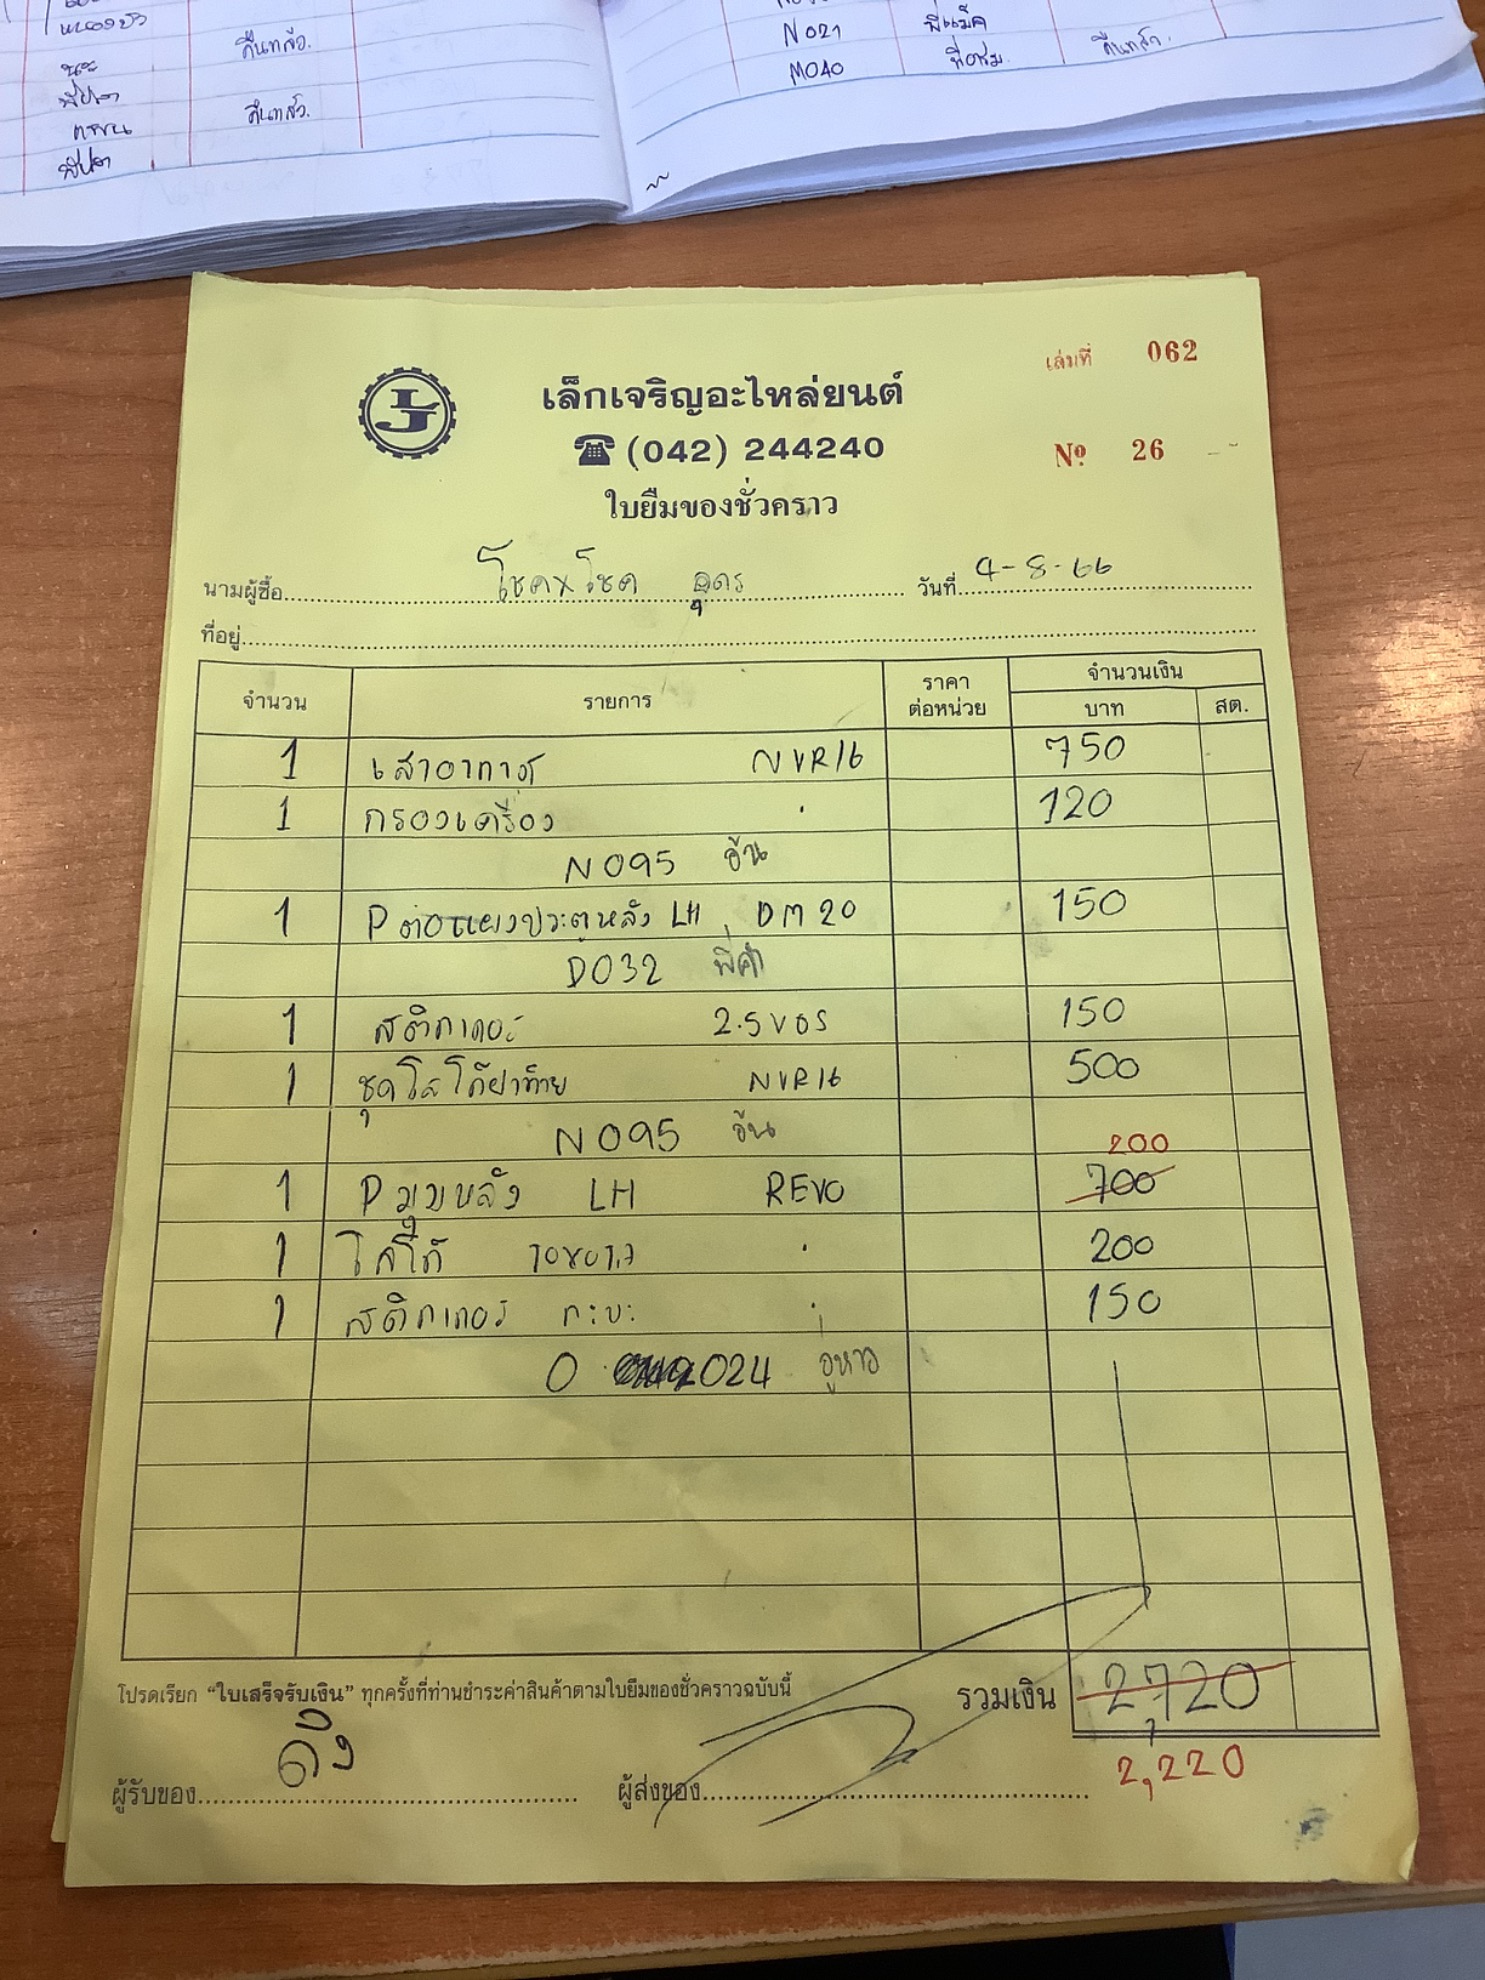 คืนแล้ว.
คืนแล้ว.
N021 พี่แม็ค
M040 คืนแล้ว.
เล่มที่ 062
เล็กเจริญอะไหล่ยนต์
(042) 244240
Nº 26
ใบยืมของชั่วคราว
นามผู้ซื้อ โชคxโชค อุดร วันที่ 4-8-66
ที่อยู่
จำนวน รายการ ราคาต่อหน่วย จำนวนเงิน
บาท สต.
1 เสาอากาศ NVR16 750
1 กรองเครื่อง . 120
N095 อ้น
1 P ต่อแผงประตูหลัง LH DM20 150
D032 พี่คำ
1 สติกเกอร์ 2.5VGS 150
1 ชุดโลโก้ฝาท้าย NVR16 500
N095 อ้น
200
1 P มุมหลัง LH REVO 700
1 โลโก้ TOYOTA . 200
1 สติกเกอร์ กะบะ . 150
O 024 อู่หาว
โปรดเรียก "ใบเสร็จรับเงิน" ทุกครั้งที่ท่านชำระค่าสินค้าตามใบยืมของชั่วคราวฉบับนี้ รวมเงิน 2,720
2,220
ผู้รับของ ดึง ผู้ส่งของ